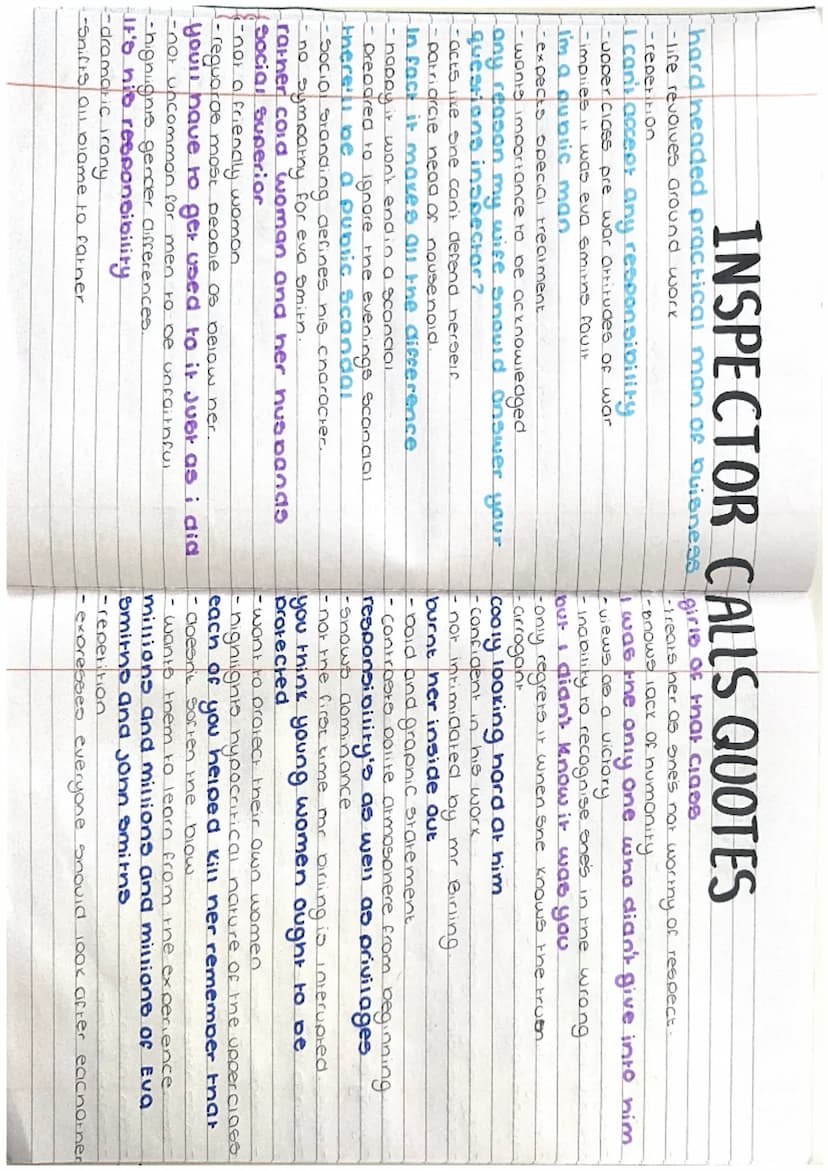 INSPECTOR CALLS QUOTES
hard headed practical man of buisness
- life revolves around work
- repetition
I can't accept any responsibility
- upper class pre war attitudes of war
- implies it was eva smiths fault
I'm a public man
- expects special treatment
- wants importance to be acknowledged
any reason my wife should answer your
questions inspector?
- acts like she can't defend herself
- patriarcle head of household.
In fact it makes all the difference
- happy it won't end in a scandal
- prepared to ignore the evenings scandal
there'll be a public scandal
- social standing defines his character.
- no sympathy for eva smith.
rather cold woman and her husbands
social superior
- not a friendly woman
- reguards most people as below her.
youll have to get used to it just as i did
- not uncommon for men to be unfaithful
- highlights gender differences.
it's his responsibility
- dramatic irony
- shifts all blame to father
girls of that class
- treats her as she's not worthy of respect.
- shows lack of humanity
I was the only one who didn't give into him
- views as a victory
- inability to recognise she's in the wrong
but i didn't know it was you
- only regrets it when she knows the truth
- arrogant
cooly looking hard at him
- confident in his work
- not intimidated by mr Birling.
burnt her inside out
- bold and graphic statement
- contrasts polite atmosphere from beginning
responsibility's as well as privilages
- shows dominance
- not the first time mr birling is interupted.
you think young women ought to be
protected
- want to protect their own women
- highlights hypocritical nature of the upperclass
each of you helped kill her remember that
- doesn't soften the blow
- wants them to learn from the experience.
millions and millions and millions of Eva
smiths and John smiths
- repetition
- expresses everyone should look after eachother